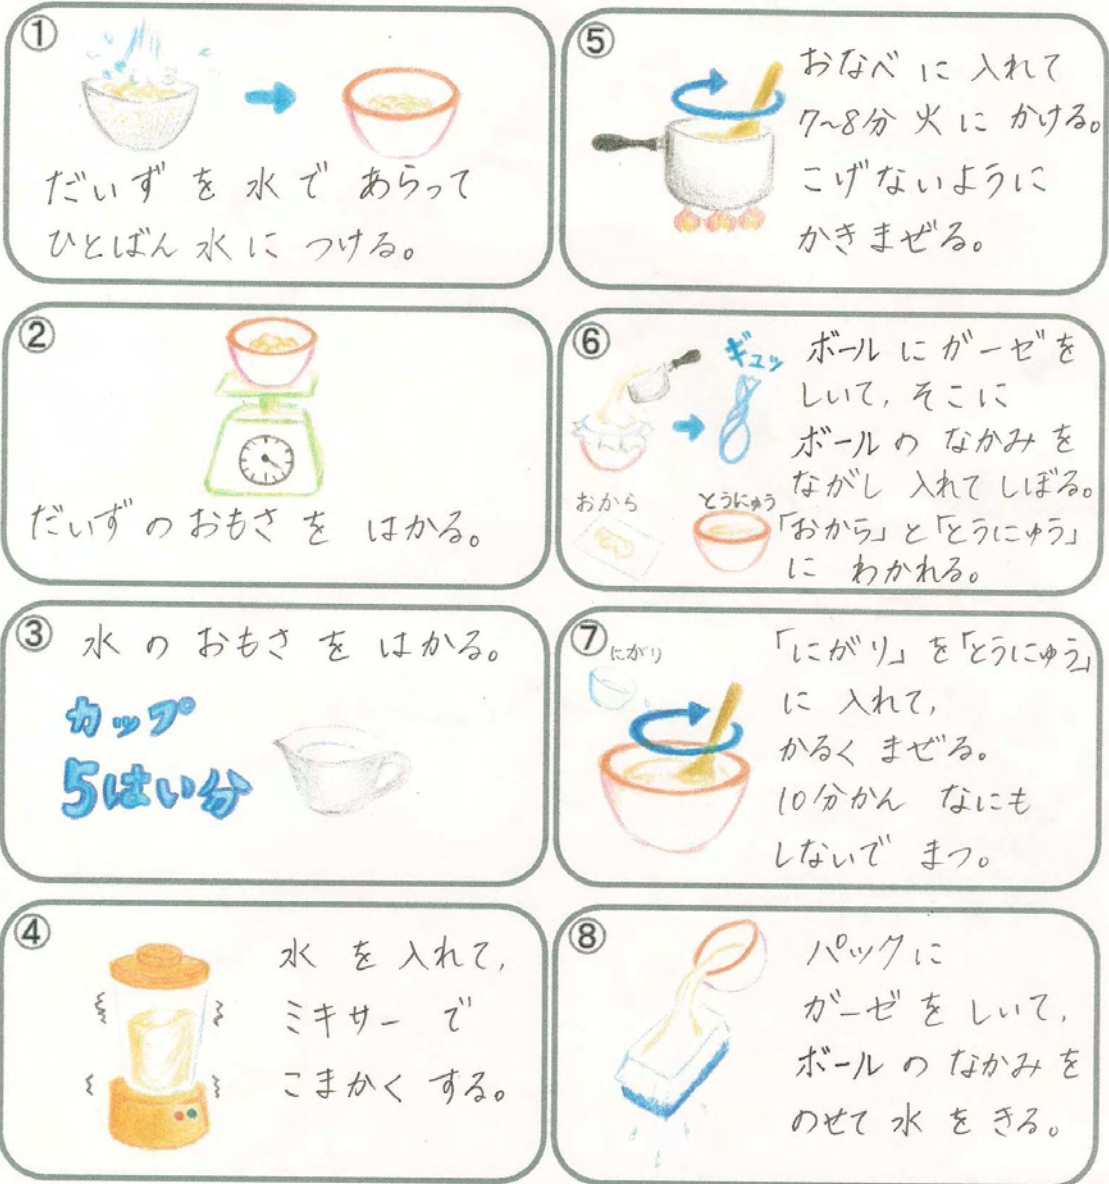 ①
だいず を 水で あらって
ひとばん 水に つける。
②
だいず の おもさ を はかる。
③
水 の おもさ を はかる。
カップ
5はい分
④
水 を 入れて,
ミキサー で
こまかく する。
⑤
おなべ に 入れて
7~8分 火 に かける。
こげないように
かきまぜる。
⑥
ギュッ
おから
とうにゅう
ボール に ガーゼ を
しいて, そこに
ボール の なかみ を
ながし 入れて しぼる。
「おから」と「とうにゅう」
に わかれる。
⑦
にがり
「にがり」を「とうにゅう」
に 入れて,
かるく まぜる。
10分かん なにも
しないで まつ。
⑧
パックに
ガーゼ を しいて,
ボール の なかみ を
のせて 水 を きる。